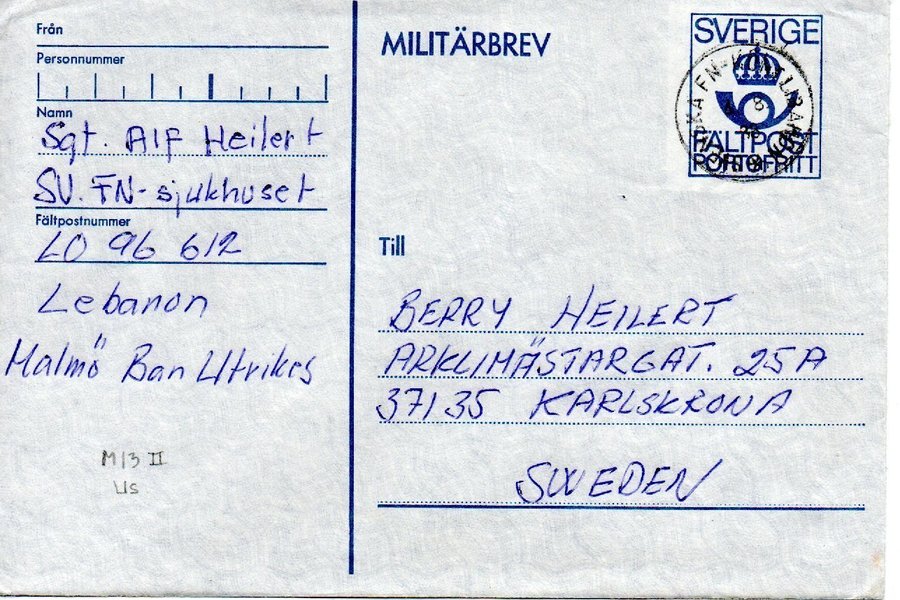 Från
Personnummer
Namn
Sgt. Alf Heilert
SV. FN-sjukhuset
Fältpostnummer
LO 96 612
Lebanon
Malmö Ban Utrikes
M13 II
US
MILITÄRBREV
SVERIGE
FÄLTPOST
PORTOFRITT
Till
BERRY HEILERT
ARKLIMÄSTARGAT. 25A
37135 KARLSKRONA
SWEDEN